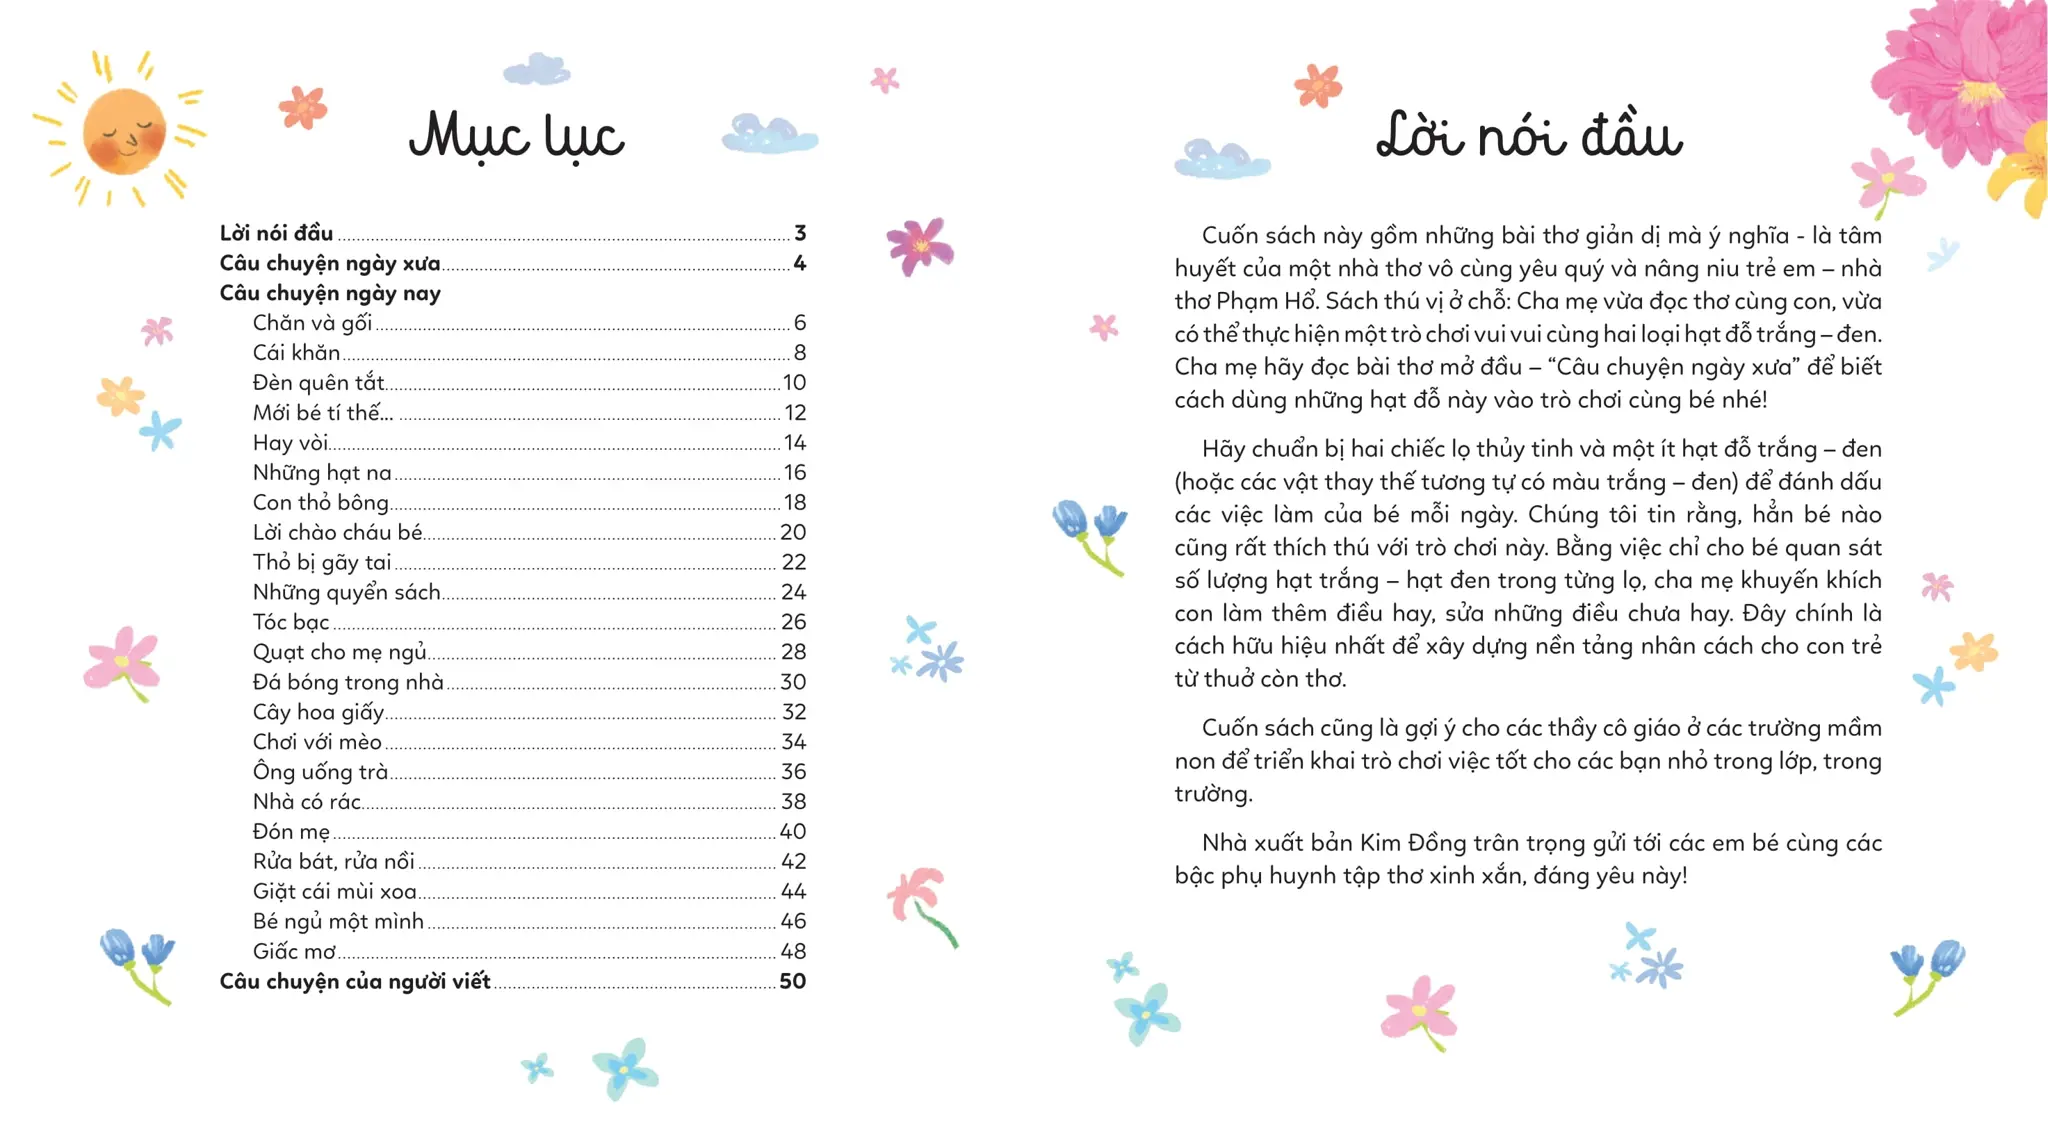 Mục lục
Lời nói đầu 3
Câu chuyện ngày xưa 4
Câu chuyện ngày nay
Chăn và gối 6
Cái khăn 8
Đèn quên tắt 10
Mới bé tí thế... 12
Hay vòi 14
Những hạt na 16
Con thỏ bông 18
Lời chào cháu bé 20
Thỏ bị gãy tai 22
Những quyển sách 24
Tóc bạc 26
Quạt cho mẹ ngủ 28
Đá bóng trong nhà 30
Cây hoa giấy 32
Chơi với mèo 34
Ông uống trà 36
Nhà có rác 38
Đón mẹ 40
Rửa bát, rửa nồi 42
Giặt cái mùi xoa 44
Bé ngủ một mình 46
Giấc mơ 48
Câu chuyện của người viết 50
Lời nói đầu
Cuốn sách này gồm những bài thơ giản dị mà ý nghĩa - là tâm
huyết của một nhà thơ vô cùng yêu quý và nâng niu trẻ em – nhà
thơ Phạm Hổ. Sách thú vị ở chỗ: Cha mẹ vừa đọc thơ cùng con, vừa
có thể thực hiện một trò chơi vui vui cùng hai loại hạt đỗ trắng – đen.
Cha mẹ hãy đọc bài thơ mở đầu – “Câu chuyện ngày xưa” để biết
cách dùng những hạt đỗ này vào trò chơi cùng bé nhé!
Hãy chuẩn bị hai chiếc lọ thủy tinh và một ít hạt đỗ trắng – đen
(hoặc các vật thay thế tương tự có màu trắng – đen) để đánh dấu
các việc làm của bé mỗi ngày. Chúng tôi tin rằng, hẳn bé nào
cũng rất thích thú với trò chơi này. Bằng việc chỉ cho bé quan sát
số lượng hạt trắng – hạt đen trong từng lọ, cha mẹ khuyến khích
con làm thêm điều hay, sửa những điều chưa hay. Đây chính là
cách hữu hiệu nhất để xây dựng nền tảng nhân cách cho con trẻ
từ thuở còn thơ.
Cuốn sách cũng là gợi ý cho các thầy cô giáo ở các trường mầm
non để triển khai trò chơi việc tốt cho các bạn nhỏ trong lớp, trong
trường.
Nhà xuất bản Kim Đồng trân trọng gửi tới các em bé cùng các
bậc phụ huynh tập thơ xinh xắn, đáng yêu này!